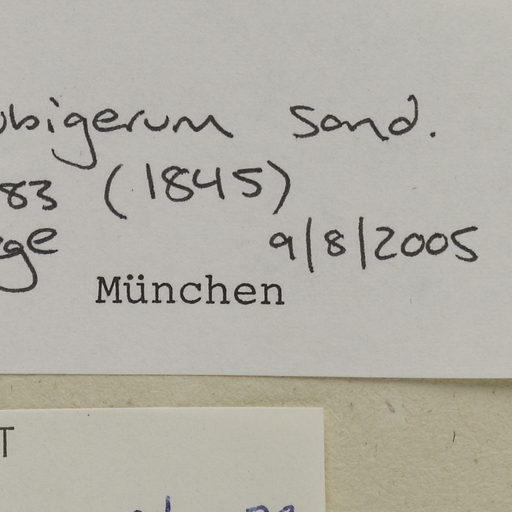 ubigerum Sond.
83 (1845)
ge 9/8/2005
München
T